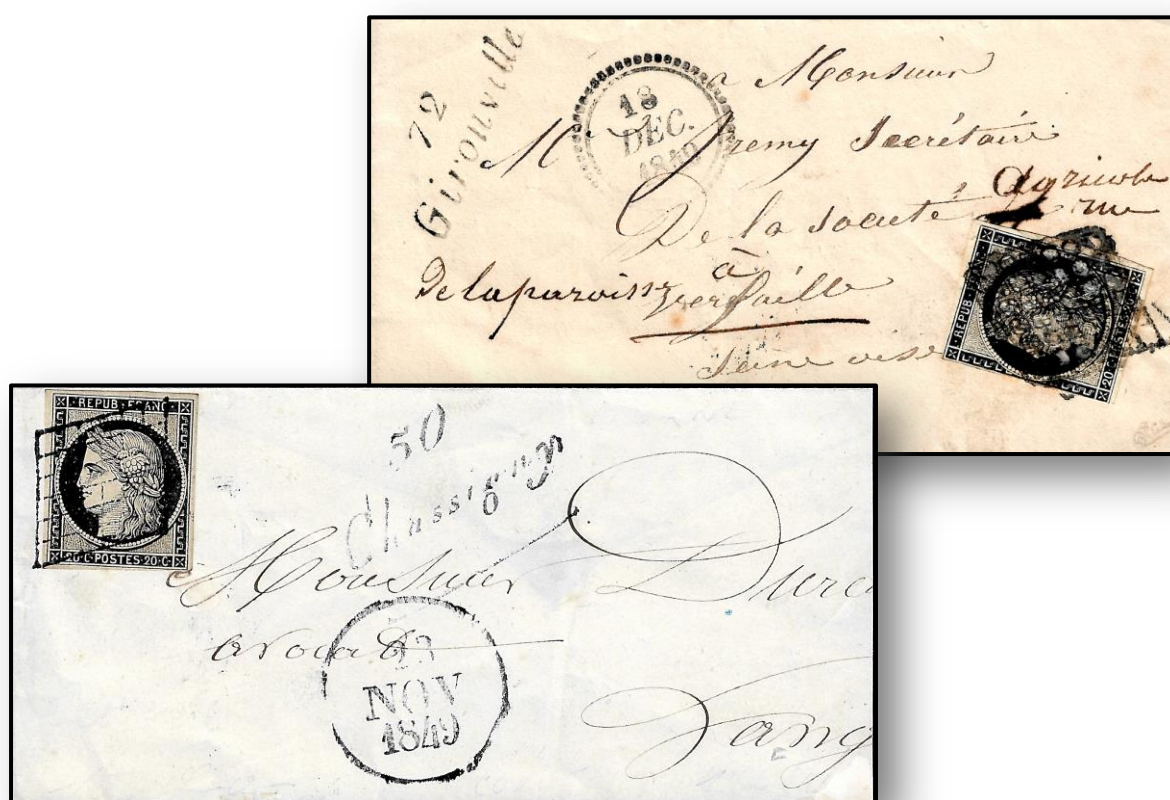 72
Girouville
18
DEC.
1849
a Monsieur
Mr fremy Secrétaire
De la société Agricole
rue
à
De la paroisse versaille
Seine oise
REPUB FRANC
20 C POSTES 20 C
REPUB FRANC
20 C POSTES 20 C
50
Chassigny
Monsieur
avocat
23
NOV
1849
Lang